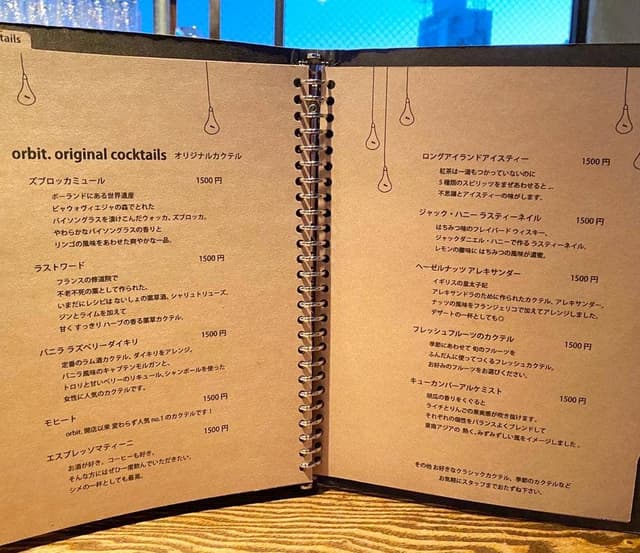 tails
orbit. original cocktails オリジナルカクテル
ズブロッカミュール 1500 円
ポーランドにある世界遺産
ビャウォヴィエジャの森でとれた
バイソングラスを漬けこんだウォッカ、ズブロッカ。
やわらかなバイソングラスの香りと
リンゴの風味をあわせた爽やかな一品。
ラストワード 1500 円
フランスの修道院で
不老不死の薬として作られた、
いまだにレシピは ないしょの薬草酒、シャリュトリューズ。
ジンとライムを加えて
甘く すっきり ハーブの香る薬草カクテル。
バニラ ラズベリーダイキリ 1500 円
定番のラム酒カクテル、ダイキリをアレンジ。
バニラ風味のキャプテンモルガンと、
トロリと甘いベリーのリキュール、シャンボールを使った
女性に人気のカクテルです。
モヒート 1500 円
orbit. 開店以来 変わらず人気 no.1 のカクテルです！
エスプレッソマティーニ 1500 円
お酒が好き。コーヒーも好き。
そんな方にはぜひ一度飲んでいただきたい。
シメの一杯としても最高。
ロングアイランドアイスティー 1500 円
紅茶は一滴もつかっていないのに
5 種類のスピリッツをまぜあわせると...
不思議とアイスティーの味がします。
ジャック・ハニー ラスティーネイル 1500 円
はちみつ味のフレイバード ウィスキー、
ジャックダニエル・ハニーで作る ラスティーネイル。
レモンの酸味に はちみつの風味が濃蜜。
ヘーゼルナッツ アレキサンダー 1500 円
イギリスの皇太子妃
アレキサンドラのために作られたカクテル、アレキサンダー。
ナッツの風味をフランジェリコで加えてアレンジしました。
デザートの一杯としても◎
フレッシュフルーツのカクテル 1500 円
季節にあわせて 旬のフルーツを
ふんだんに使ってつくるフレッシュカクテル。
お好みのフルーツをお選びください。
キューカンバーアルケミスト 1500 円
胡瓜の香りをくぐると
ライチとりんごの果実感が吹き抜けます。
それぞれの個性をバランスよくブレンドして
東南アジアの 熱く、みずみずしい風をイメージしました。
その他 お好きなクラシックカクテル、季節のカクテルなど
お気軽にスタッフまでおたずね下さい。